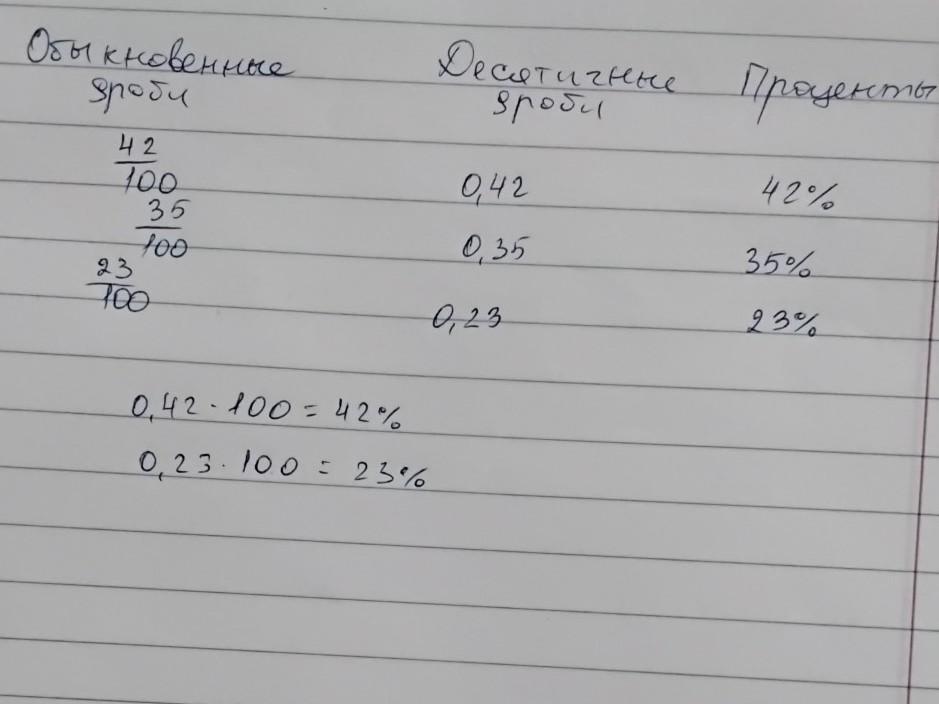 Обыкновенные Десятичные Проценты
дроби дроби
42/100 0,42 42%
35/100 0,35 35%
23/100 0,23 23%
0,42 · 100 = 42%
0,23 · 100 = 23%